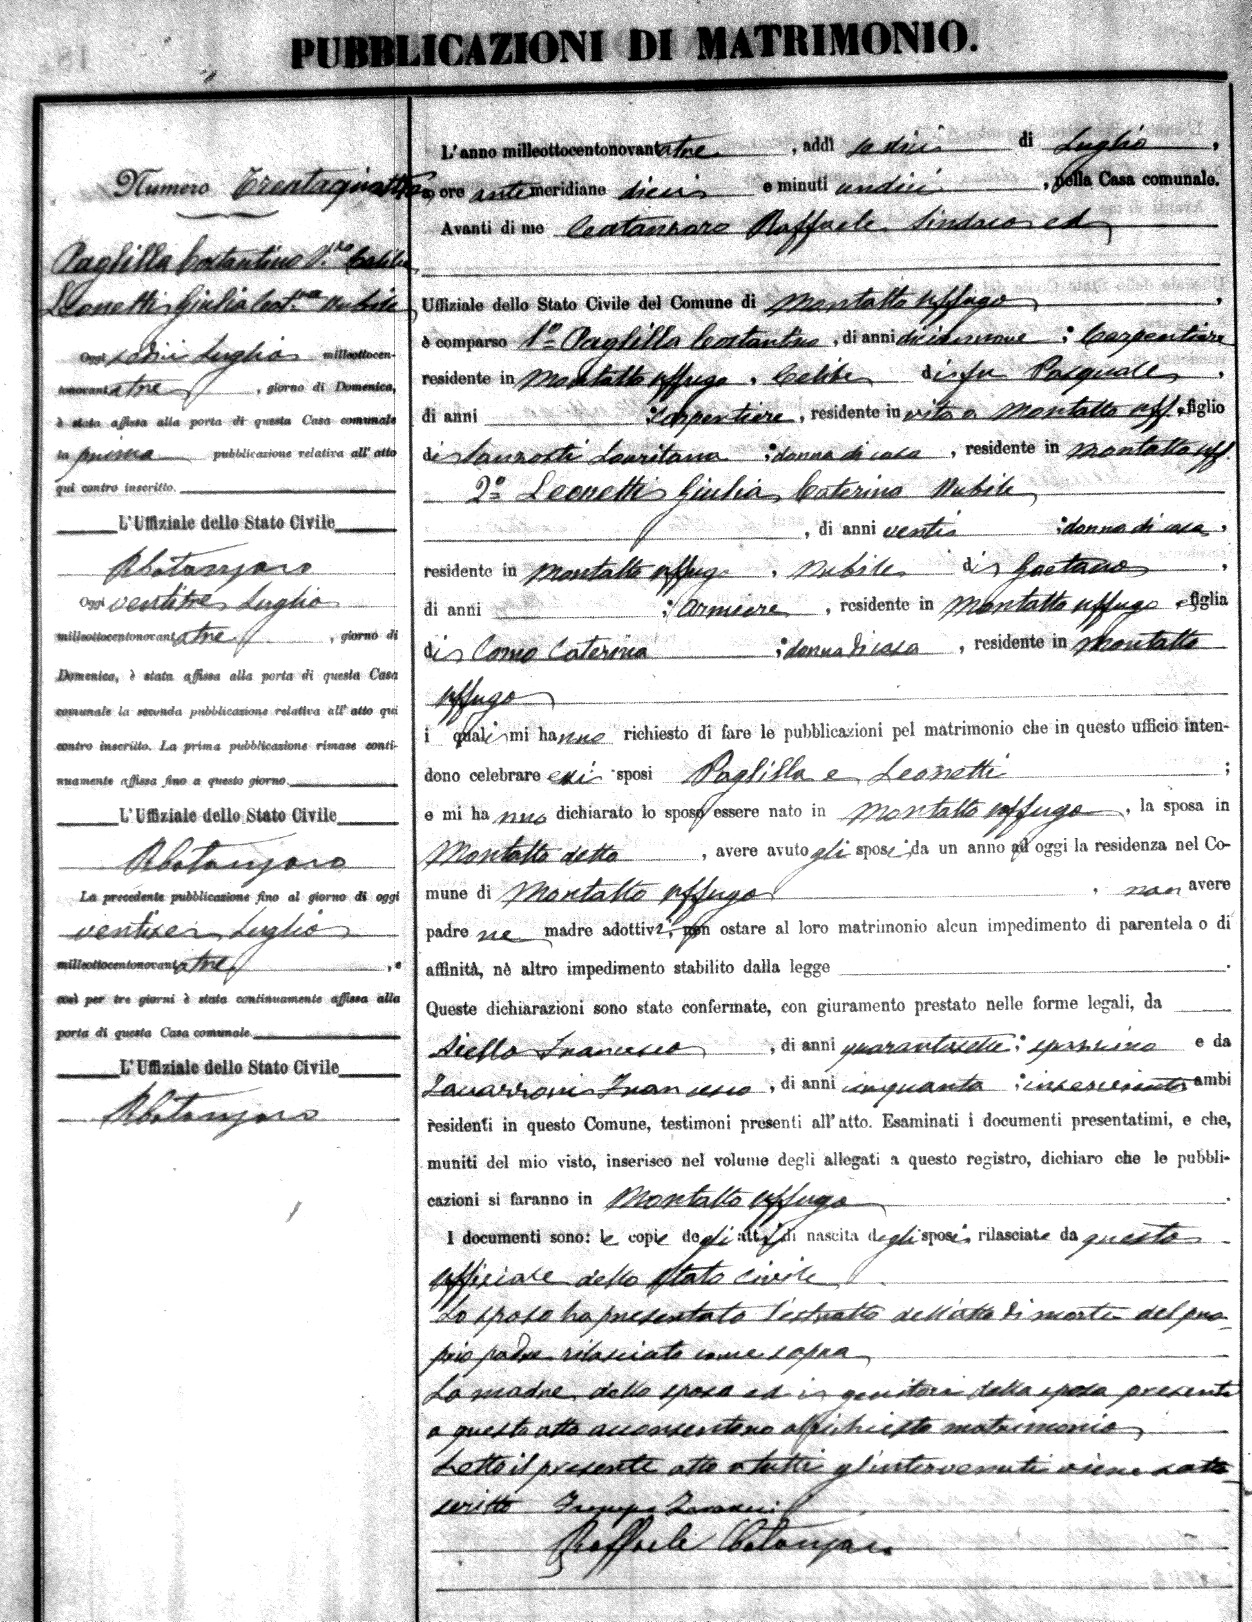 PUBBLICAZIONI DI MATRIMONIO.
Numero Trentaquattro
Paglilla Costantino Celibe
Leonetti Giulia Cat.na Nubile
Oggi sedici Luglio milleottocen-
tonovantatre, giorno di Domenica,
è stata affissa alla porta di questa Casa comunale
la prima pubblicazione relativa all' atto
qui contro inscritto.
L'Uffiziale dello Stato Civile
RCatanzaro
Oggi ventitre Luglio
milleottocentonovantatre, giorno di
Domenica, è stata affissa alla porta di questa Casa
comunale la seconda pubblicazione relativa all' atto qui
contro inscritto. La prima pubblicazione rimase conti-
nuamente affissa fino a questo giorno.
L'Uffiziale dello Stato Civile
RCatanzaro
La precedente pubblicazione fino al giorno di oggi
ventisei Luglio
milleottocentonovantatre, e
così per tre giorni è stata continuamente affissa alla
porta di questa Casa comunale.
L'Uffiziale dello Stato Civile
RCatanzaro
L'anno milleottocentonovantatre, addì sedici di Luglio,
a ore antemeridiane dieci e minuti undici, nella Casa comunale.
Avanti di me Catanzaro Raffaele Sindaco ed
Uffiziale dello Stato Civile del Comune di Montalto Uffugo,
è comparso 1º Paglilla Costantino, di anni diciannove; Carpentiere
residente in Montalto Uffugo, Celibe di fu Pasquale,
di anni ; Carpentiere, residente in vita a Montalto Uff. e figlio
di Loritana ; donna di casa, residente in Montalto Uff.
2º Leonetti Giulia Caterina Nubile
, di anni venti ; donna di casa,
residente in Montalto Uffugo, nubile di Gaetano,
di anni ; Armiere, residente in Montalto Uffugo, e figlia
di Como Caterina ; donna di casa, residente in Montalto
Uffugo
i quali mi hanno richiesto di fare le pubblicazioni pel matrimonio che in questo ufficio inten-
dono celebrare essi sposi Paglilla e Leonetti ;
e mi hanno dichiarato lo sposo essere nato in Montalto Uffugo, la sposa in
Montalto detto, avere avuto gli sposi da un anno ad oggi la residenza nel Co-
mune di Montalto Uffugo, non avere
padre ne madre adottivi, non ostare al loro matrimonio alcun impedimento di parentela o di
affinità, nè altro impedimento stabilito dalla legge .
Queste dichiarazioni sono state confermate, con giuramento prestato nelle forme legali, da
Aiello Francesco, di anni quarantasette; spazzino e da
Zavarroni Francesco, di anni cinquanta; inserviente ambi
residenti in questo Comune, testimoni presenti all' atto. Esaminati i documenti presentatimi, e che,
muniti del mio visto, inserisco nel volume degli allegati a questo registro, dichiaro che le pubbli-
cazioni si faranno in Montalto Uffugo.
I documenti sono: le copie degli atti di nascita degli sposi rilasciate da questo
Ufficiale dello Stato Civile
Lo sposo ha presentato l'estratto dell'atto di morte del pro-
prio padre rilasciato come sopra
La madre dello sposo ed i genitori della sposa presenti
a questo atto acconsentono al richiesto matrimonio
Letto il presente atto a tutti gl'intervenuti viene sotto
scritto
Raffaele Catanzaro